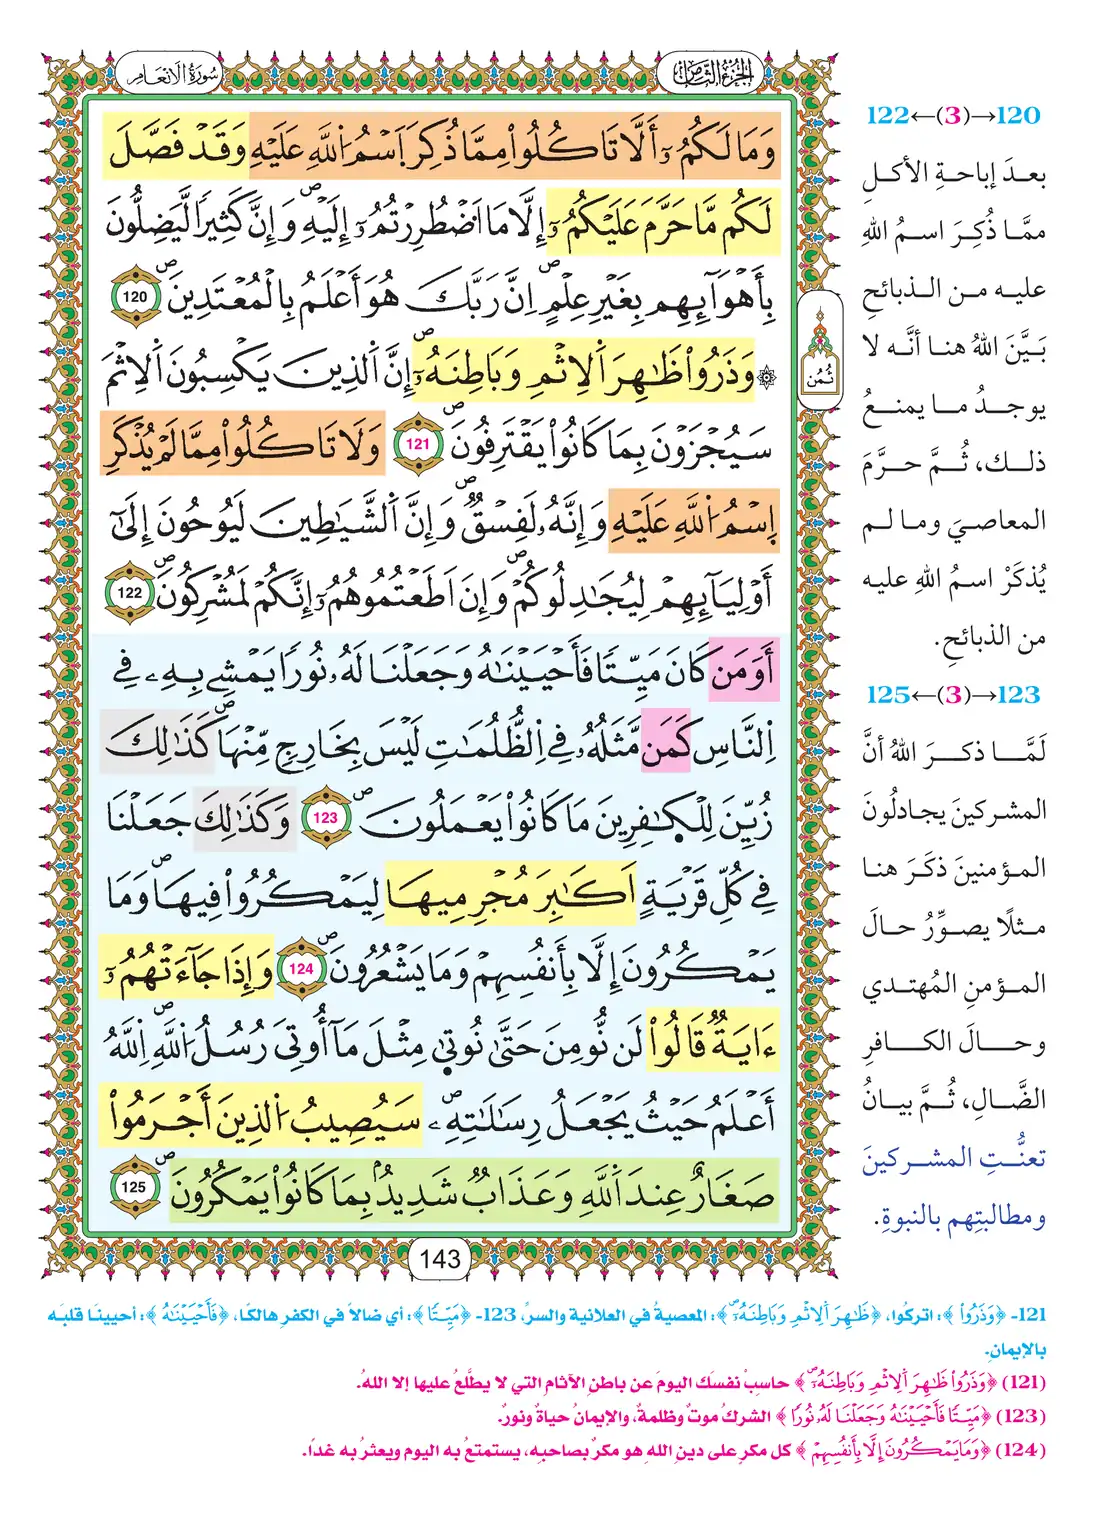 الجزء الثامن
سورة الانعام
وَمَا لَكُمُۥٓ أَلَّا تَاكُلُواْ مِمَّا ذُكِرَ اَسْمُ اُللَّهِ عَلَيْهِ وَقَدْ فَصَّلَ
لَكُم مَّا حَرَّمَ عَلَيْكُمُۥٓ إِلَّا مَا اَضْطُرِرْتُمُۥٓ إِلَيْهِۖ وَإِنَّ كَثِيرًا لَّيَضِلُّونَ
بِأَهْوَآئِهِم بِغَيْرِ عِلْمٍۖ اِنَّ رَبَّكَ هُوَ أَعْلَمُ بِالْمُعْتَدِينَۖ 120
۞ وَذَرُواْ ظَٰهِرَ اَلِاثْمِ وَبَاطِنَهُۥٓۖ إِنَّ اَلذِينَ يَكْسِبُونَ اَلِاثْمَ
سَيُجْزَوْنَ بِمَا كَانُواْ يَقْتَرِفُونَۖ 121 وَلَا تَاكُلُواْ مِمَّا لَمْ يُذْكَرِ
اِسْمُ اُللَّهِ عَلَيْهِ وَإِنَّهُۥ لَفِسْقٌۖ وَإِنَّ اَلشَّيَٰطِينَ لَيُوحُونَ إِلَىٰٓ
أَوْلِيَآئِهِمْ لِيُجَٰدِلُوكُمْۖ وَإِنَ اَطَعْتُمُوهُمُۥٓ إِنَّكُمْ لَمُشْرِكُونَۖ 122
أَوَمَن كَانَ مَيِّتًا فَأَحْيَيْنَٰهُ وَجَعَلْنَا لَهُۥ نُورًا يَمْشِي بِهِۦ فِي
اِلنَّاسِ كَمَن مَّثَلُهُۥ فِي اِلظُّلُمَٰتِ لَيْسَ بِخَارِجٍ مِّنْهَاۖ كَذَٰلِكَ
زُيِّنَ لِلْكَٰفِرِينَ مَا كَانُواْ يَعْمَلُونَۖ 123 وَكَذَٰلِكَ جَعَلْنَا
فِي كُلِّ قَرْيَةٍ اَكَٰبِرَ مُجْرِمِيهَا لِيَمْكُرُواْ فِيهَاۖ وَمَا
يَمْكُرُونَ إِلَّا بِأَنفُسِهِمْ وَمَا يَشْعُرُونَۖ 124 وَإِذَا جَآءَتْهُمُۥٓ
ءَايَةٌ قَالُواْ لَن نُّومِنَ حَتَّىٰ نُوتَىٰ مِثْلَ مَآ أُوتِيَ رُسُلُ اُللَّهِۖ اِللَّهُ
أَعْلَمُ حَيْثُ يَجْعَلُ رِسَٰلَٰتِهِۦۖ سَيُصِيبُ اُلذِينَ أَجْرَمُواْ
صَغَارٌ عِندَ اَللَّهِ وَعَذَابٌ شَدِيدٌۢ بِمَا كَانُواْ يَمْكُرُونَۖ 125
ثُمُن
143
122←(3)→120
بعدَ إباحةِ الأكلِ
ممَّا ذُكِرَ اسمُ اللهِ
عليه من الذبائحِ
بَيَّنَ اللهُ هنا أنَّه لا
يوجدُ ما يمنعُ
ذلك، ثُمَّ حرَّمَ
المعاصيَ وما لم
يُذكَرْ اسمُ اللهِ عليه
من الذبائحِ.
125←(3)→123
لَمَّا ذكرَ اللهُ أنَّ
المشركينَ يجادلُونَ
المؤمنينَ ذكَرَ هنا
مثلًا يصوِّرُ حالَ
المؤمنِ المُهتدي
وحالَ الكافرِ
الضَّالِ، ثُمَّ بيانُ
تعنُّتِ المشركينَ
ومطالبتِهم بالنبوةِ.
121- ﴿وَذَرُواْ﴾: اتركُوا، ﴿ظَٰهِرَ اَلِاثْمِ وَبَاطِنَهُۥٓۖ﴾: المعصيةُ في العلانية والسرِّ، 123- ﴿مَيِّتًا﴾: أي ضالاً في الكفر هالكًا، ﴿فَأَحْيَيْنَٰهُ﴾: أحيينا قلبَه
بالإيمانِ.
(121) ﴿وَذَرُواْ ظَٰهِرَ اَلِاثْمِ وَبَاطِنَهُۥٓۖ﴾ حاسِبْ نفسَك اليومَ عن باطنِ الآثامِ التي لا يطَّلعُ عليها إلا اللهُ.
(123) ﴿مَيِّتًا فَأَحْيَيْنَٰهُ وَجَعَلْنَا لَهُۥ نُورًا﴾ الشركُ موتٌ وظلمةٌ، والإيمانُ حياةٌ ونورٌ.
(124) ﴿وَمَا يَمْكُرُونَ إِلَّا بِأَنفُسِهِمْ﴾ كل مكرٍ على دينِ اللهِ هو مكرٌ بصاحبِه، يستمتعُ به اليوم ويعثرُ به غدًا.